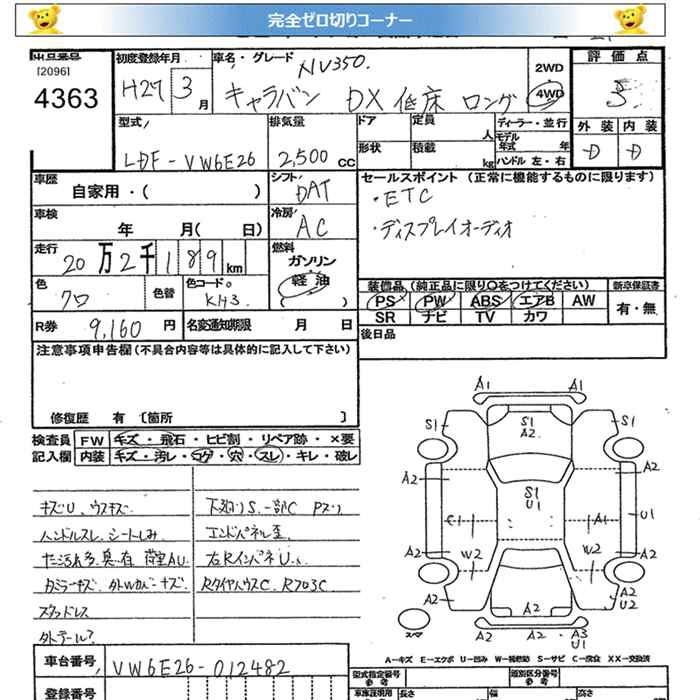 完全ゼロ切りコーナー
出品番号
[2096]
4363
初度登録年月
H27 3 月
車名・グレード
NV350.
キャラバン DX 低床 ロング
2WD
4WD
評価点
3
外装 内装
D D
型式
LDF-VW6E26
排気量
2,500 cc
ドア
定員
人
形状
積載
kg
ディーラー・並行
モデル
年式 年
ハンドル 左・右
車歴
自家用・( )
シフト
DAT
車検
年 月( 日)
冷房
AC
セールスポイント (正常に機能するものに限ります)
・ETC
・ディスプレイオーディオ
走行
20万2千189km
燃料
ガソリン
軽油
( )
色
クロ
色替
色コードNo.
KH3
装備品 (純正品に限り○をつけてください)
PS PW ABS エアB AW
SR ナビ TV カワ
新車保証書
有・無
R券 9,160 円
名変通知期限 月 日
後日品
注意事項申告欄(不具合内容等は具体的に記入して下さい)
修復歴 有 〔箇所 〕
検査員
記入欄
FW キズ・飛石・ヒビ割・リペア跡・×要
内装 キズ・汚レ・コゲ・穴・スレ・キレ・破レ
キズU、ウスキズ
ハンドルスレ、シートしみ
荷室AU
スタッドレス
外テール?
下廻りS、一部C Pズリ
エンドパネル歪
左RインパネU
RタイヤハウスC、R703C
A1 A1
S1 S1
A2
S1
A2 A2
S1
U1
C1 A1 U1
A2 A2
W2 W2
A2 A2 A2
U2
スペア
A2 A2 A3
U1
A―キズ E―エクボ U―凹み W―補修跡 S―サビ C―腐食 XX―交換済
車台番号 VW6E26-012482
登録番号
型式指定番号
参考
類別区分番号
参考
車庫証明用
長さ
幅
高さ